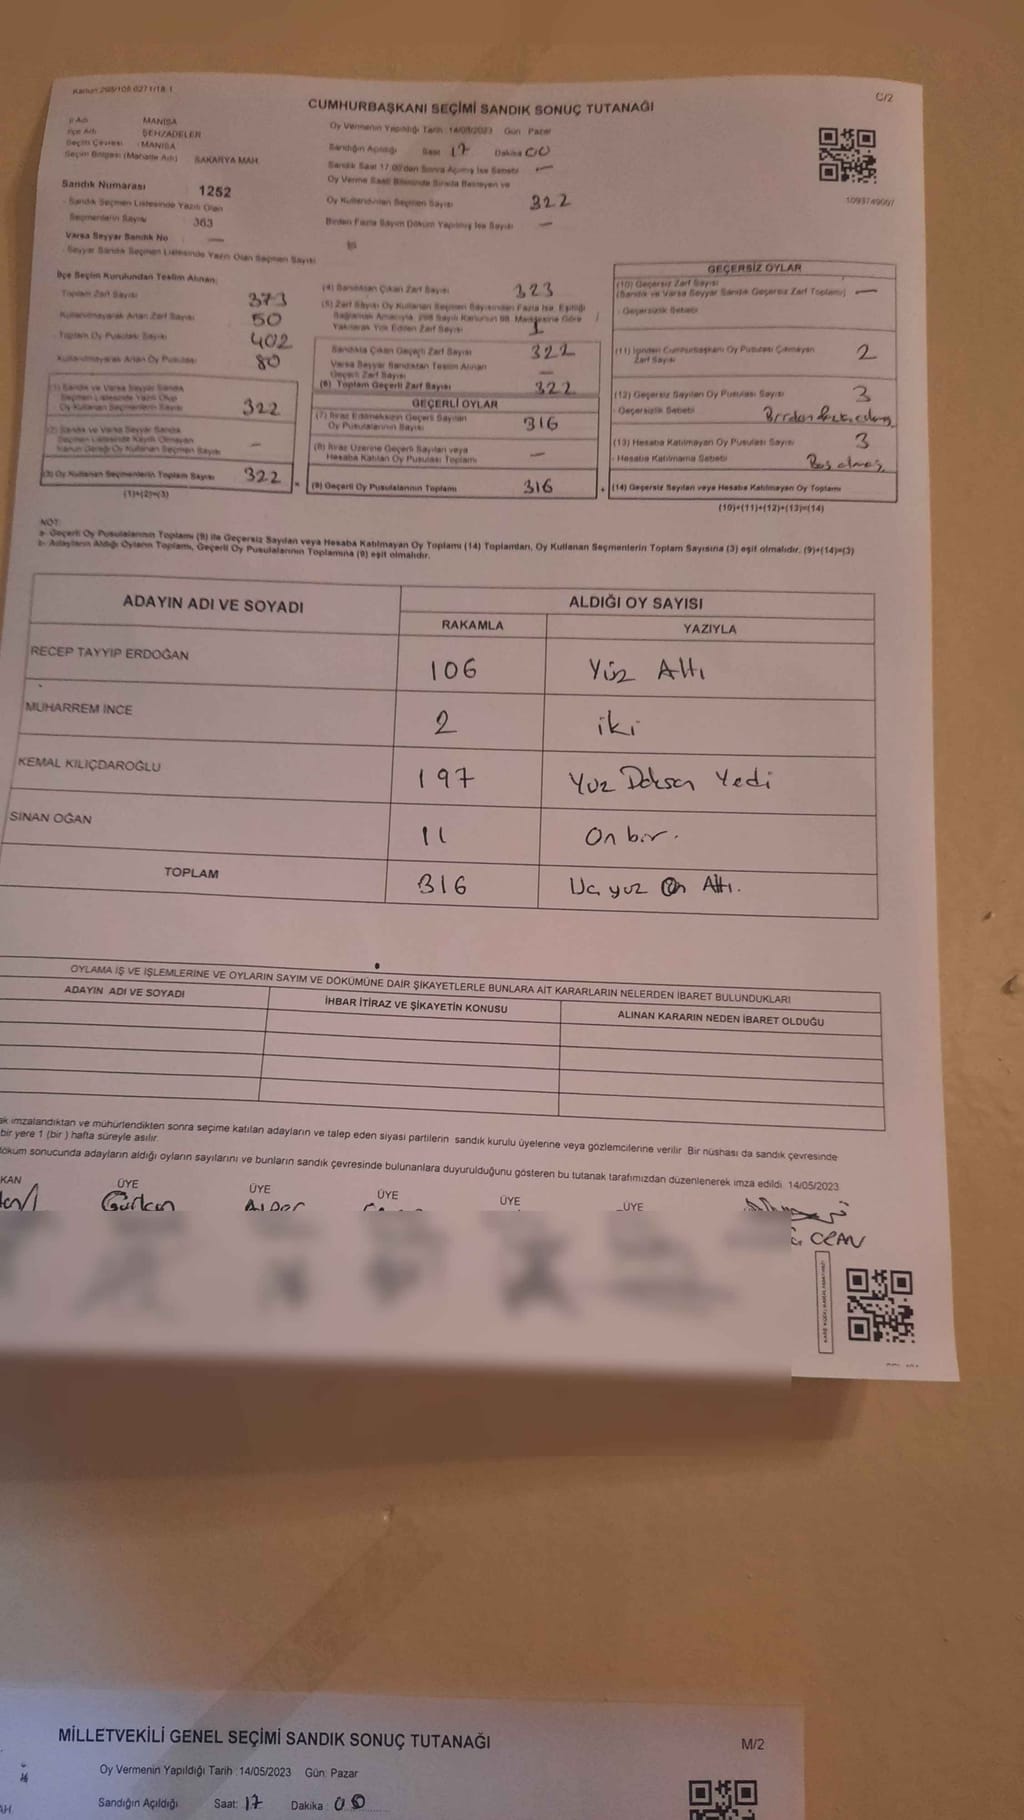 Kanun:298/105 0271/18 1
C/2
CUMHURBAŞKANI SEÇİMİ SANDIK SONUÇ TUTANAĞI
İl Adı MANİSA
İlçe Adı ŞEHZADELER
Seçim Çevresi :MANİSA
Seçim Bölgesi (Mahalle Adı) SAKARYA MAH.
Oy Vermenin Yapıldığı Tarih :14/05/2023 Gün Pazar
Sandığın Açıldığı Saat 17 Dakika 00
Sandık Saat 17:00'dan Sonra Açılmış İse Sebebi —
Oy Verme Saati Bitiminde Sırada Bekleyen ve
Oy Kullandırılan Seçmen Sayısı 322
Birden Fazla Sayım Döküm Yapılmış İse Sayısı —
Sandık Numarası 1252
- Sandık Seçmen Listesinde Yazılı Olan
Seçmenlerin Sayısı 363
Varsa Seyyar Sandık No —
- Seyyar Sandık Seçmen Listesinde Yazılı Olan Seçmen Sayısı
1093749007
İlçe Seçim Kurulundan Teslim Alınan;
Toplam Zarf Sayısı 373
Kullanılmayarak Artan Zarf Sayısı 50
Toplam Oy Pusulası Sayısı 402
Kullanılmayarak Artan Oy Pusulası 80
(1) Sandık ve Varsa Seyyar Sandık
Seçmen Listesinde Yazılı Olup
Oy Kullanan Seçmenlerin Sayısı 322
(2) Sandık ve Varsa Seyyar Sandık
Seçmen Listesinde Kayıtlı Olmayan
Kanun Gereği Oy Kullanan Seçmen Sayısı —
(3) Oy Kullanan Seçmenlerin Toplam Sayısı 322
(1)+(2)=(3)
(4) Sandıktan Çıkan Zarf Sayısı 323
(5) Zarf Sayısı Oy Kullanan Seçmen Sayısından Fazla İse, Eşitliği
Sağlamak Amacıyla, 298 Sayılı Kanunun 98. Maddesine Göre
Yakılarak Yok Edilen Zarf Sayısı 1
Sandıkta Çıkan Geçerli Zarf Sayısı 322
Varsa Seyyar Sandıktan Teslim Alınan
Geçerli Zarf Sayısı —
(6) Toplam Geçerli Zarf Sayısı 322
GEÇERLİ OYLAR
(7) İtiraz Edilmeksizin Geçerli Sayılan
Oy Pusulalarının Sayısı 316
(8) İtiraz Üzerine Geçerli Sayılan veya
Hesaba Katılan Oy Pusulası Toplamı —
(9) Geçerli Oy Pusulalarının Toplamı 316
GEÇERSİZ OYLAR
(10) Geçersiz Zarf Sayısı
(Sandık ve Varsa Seyyar Sandık Geçersiz Zarf Toplamı) —
- Geçersizlik Sebebi
(11) İçinden Cumhurbaşkanı Oy Pusulası Çıkmayan
Zarf Sayısı 2
(12) Geçersiz Sayılan Oy Pusulası Sayısı 3
- Geçersizlik Sebebi
(13) Hesaba Katılmayan Oy Pusulası Sayısı 3
- Hesaba Katılmama Sebebi Boş olması
(14) Geçersiz Sayılan veya Hesaba Katılmayan Oy Toplamı
(10)+(11)+(12)+(13)=(14)
NOT:
a- Geçerli Oy Pusulalarının Toplamı (9) ile Geçersiz Sayılan veya Hesaba Katılmayan Oy Toplamı (14) Toplamları, Oy Kullanan Seçmenlerin Toplam Sayısına (3) eşit olmalıdır. (9)+(14)=(3)
b- Adayların Aldığı Oyların Toplamı, Geçerli Oy Pusulalarının Toplamına (9) eşit olmalıdır.
ADAYIN ADI VE SOYADI
ALDIĞI OY SAYISI
RAKAMLA YAZIYLA
RECEP TAYYIP ERDOĞAN 106 Yüz Altı
MUHARREM İNCE 2 iki
KEMAL KILIÇDAROĞLU 197 Yuz Doksan Yedi
SİNAN OĞAN 11 On bir.
TOPLAM 316 Uç yuz On Altı.
OYLAMA İŞ VE İŞLEMLERINE VE OYLARIN SAYIM VE DÖKÜMÜNE DAİR ŞİKAYETLERLE BUNLARA AİT KARARLARIN NELERDEN İBARET BULUNDUKLARI
ADAYIN ADI VE SOYADI İHBAR İTİRAZ VE ŞİKAYETİN KONUSU ALINAN KARARIN NEDEN İBARET OLDUĞU
ak imzalandıktan ve mühürlendikten sonra seçime katılan adayların ve talep eden siyasi partilerin sandık kurulu üyelerine veya gözlemcilerine verilir Bir nüshası da sandık çevresinde
bir yere 1 (bir ) hafta süreyle asılır.
döküm sonucunda adayların aldığı oyların sayılarını ve bunların sandık çevresinde bulunanlara duyurulduğunu gösteren bu tutanak tarafımızdan düzenlenerek imza edildi. 14/05/2023
KAN ÜYE ÜYE ÜYE ÜYE ÜYE
Gürkan
MİLLETVEKİLİ GENEL SEÇİMİ SANDIK SONUÇ TUTANAĞI
M/2
Oy Vermenin Yapıldığı Tarih :14/05/2023 Gün: Pazar
Sandığın Açıldığı Saat: 17 Dakika : 00
AH.